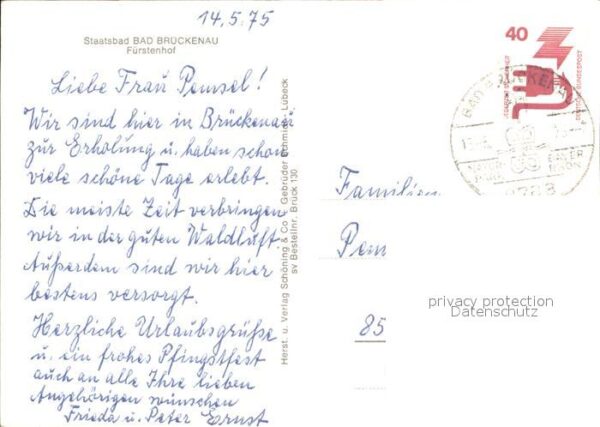 14.5.75
Staatsbad BAD BRÜCKENAU
Fürstenhof
Liebe Frau Pemsel!
Wir sind hier in Brückenau
zur Erholung u. haben schon
viele schöne Tage erlebt.
Die meiste Zeit verbringen
wir in der guten Waldluft.
Außerdem sind wir hier
bestens versorgt.
Herzliche Urlaubsgrüße
u. ein frohes Pfingstfest
auch an alle Ihre lieben
Angehörigen wünschen
Frieda u. Peter Ernst
Herst. u. Verlag Schöning & Co + Gebrüder Schmidt, Lübeck
sv Bestellnr. Brück 130
40
JEDERZEIT SICHERHEIT
DEUTSCHE BUNDESPOST
BAD BRÜCKENAU
Familien
Pem
85
privacy protection
Datenschutz